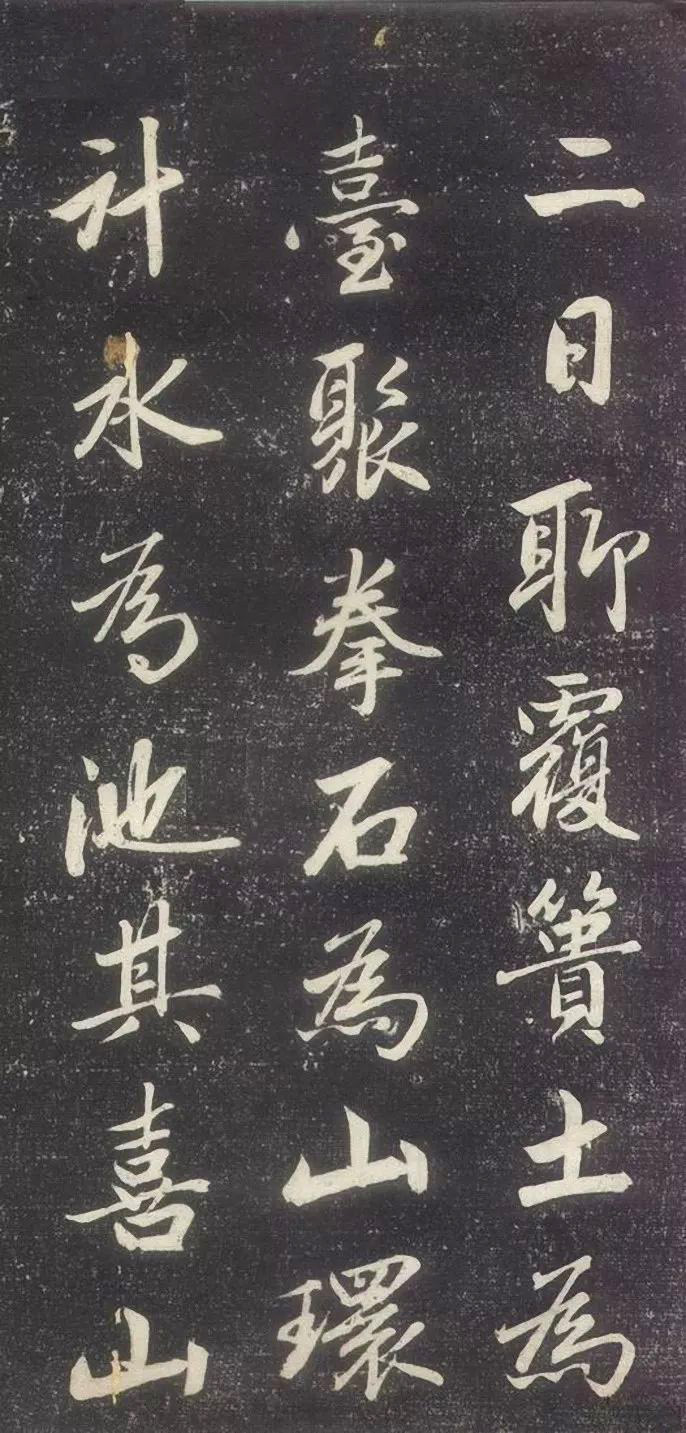 二日聊覆簣土為
臺聚拳石為山環
計水為池其喜山